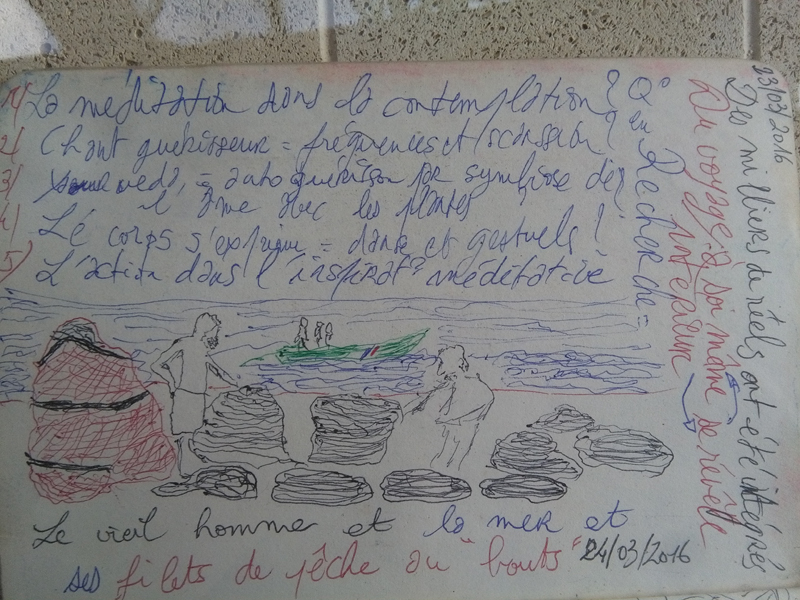 1/ La méditation dans la contemplation ?
2/ Chant guérisseur = fréquences et
3/ = autoguérison par symbiose de
l'âme avec les plantes
4/ Le corps s'explique = danse et gestuels !
5/ L'action dans l'inspirat° méditative
en Recherche =
Du voyage à soi même se révèle
intérieure
23/03/2016
Des milliers de réels ont été intégrés
Le vieil homme et la mer et
ses filets de pêche ou "bouts" 24/03/2016